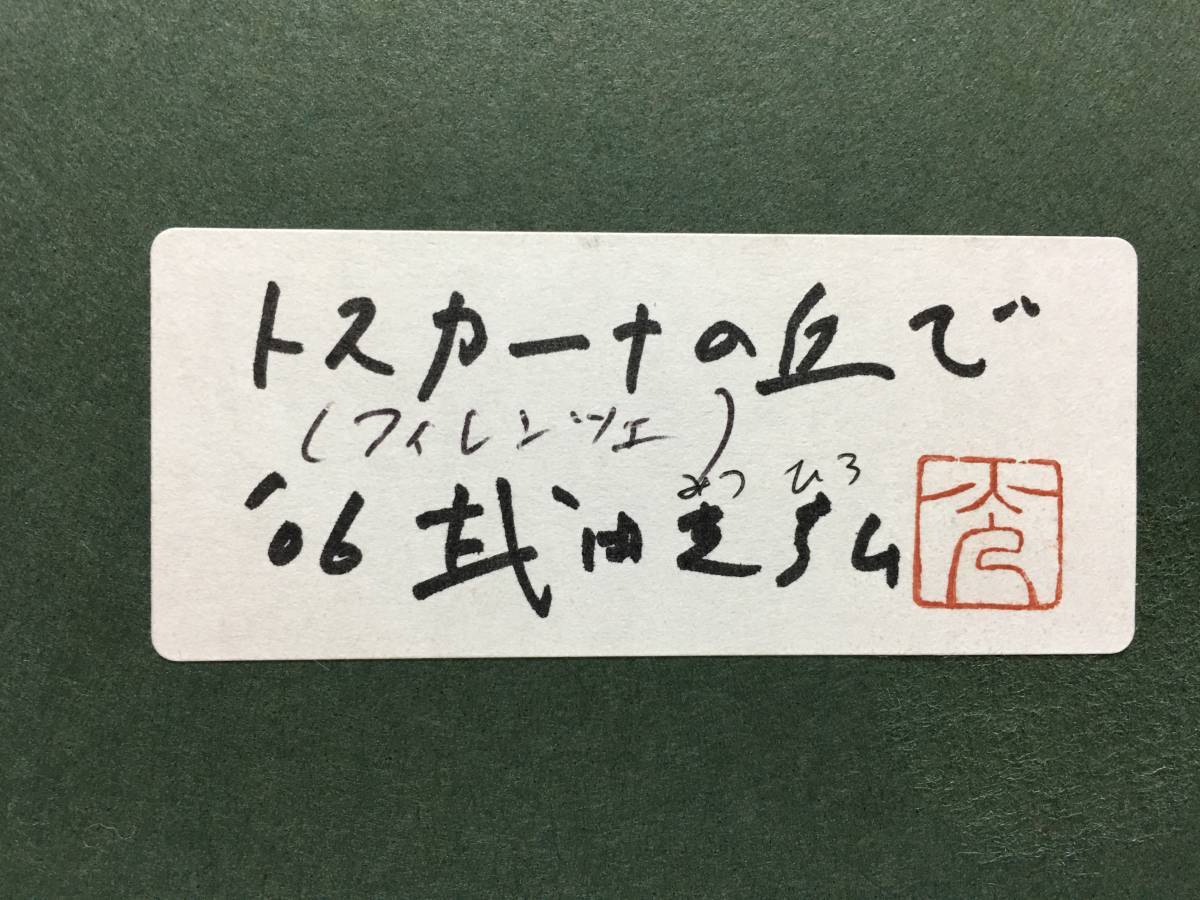 トスカーナの丘で
(フィレンツェ)
みつ ひろ
'06 光弘